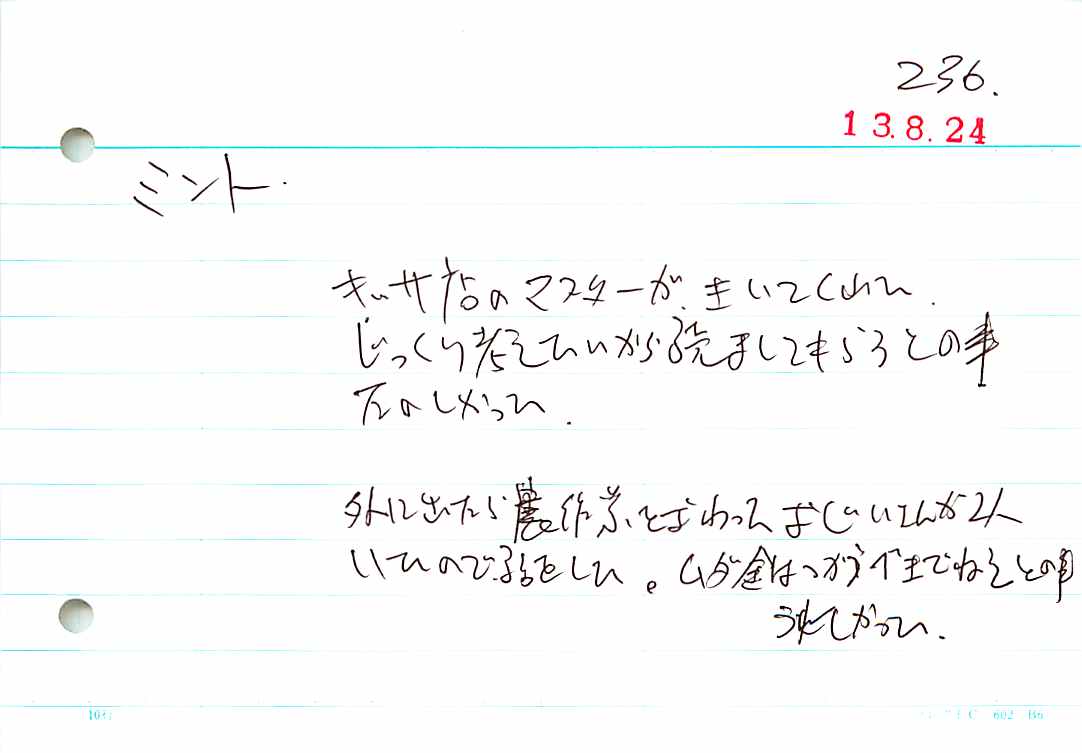 236.
13.8.24
ミント.
キッサ店のマスターが、まいてくれた.
じっくり考えたいから読ましてもらうとの事
たのしかった.
外に出たら農作業をおわったおじいさんが2人
いたので話をした。ムダ金はつかうべきでねえとの事
うれしかった.
602 B6